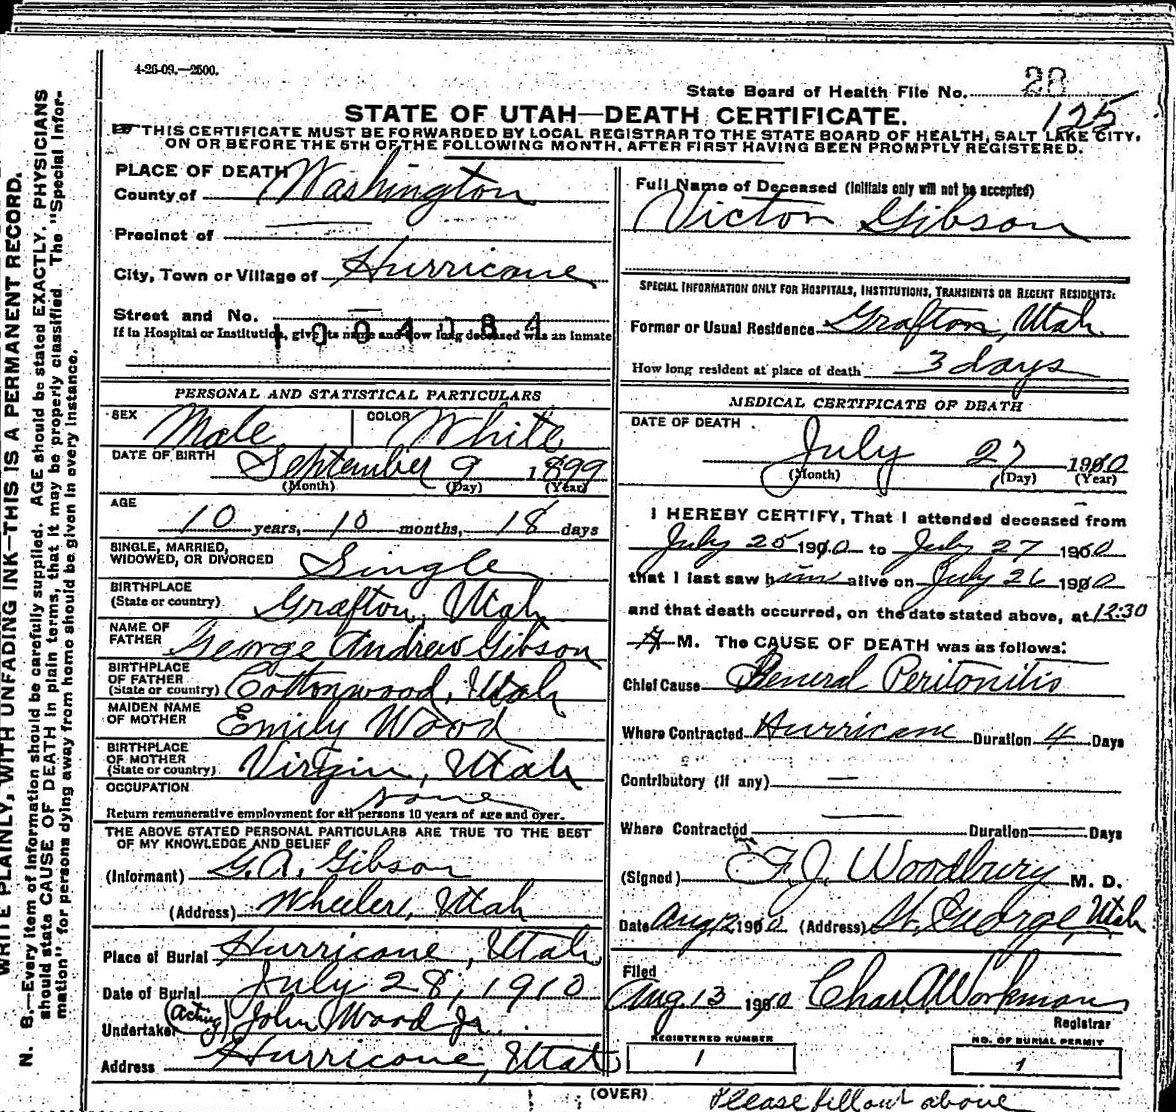 4-26-09.—2500.
State Board of Health File No. 28
125
STATE OF UTAH—DEATH CERTIFICATE.
☞ THIS CERTIFICATE MUST BE FORWARDED BY LOCAL REGISTRAR TO THE STATE BOARD OF HEALTH, SALT LAKE CITY,
ON OR BEFORE THE 5TH OF THE FOLLOWING MONTH, AFTER FIRST HAVING BEEN PROMPTLY REGISTERED.
PLACE OF DEATH
County of Washington
Precinct of
City, Town or Village of Hurricane
Street and No. —
1004084
If in Hospital or Institution, give its name and how long deceased was an inmate
PERSONAL AND STATISTICAL PARTICULARS
SEX Male COLOR White
DATE OF BIRTH September 9 1899
(Month) (Day) (Year)
AGE
10 years, 10 months, 18 days
SINGLE, MARRIED,
WIDOWED, OR DIVORCED Single
BIRTHPLACE
(State or country) Grafton, Utah
NAME OF
FATHER George Andrew Gibson
BIRTHPLACE
OF FATHER
(State or country) Cottonwood, Utah
MAIDEN NAME
OF MOTHER Emily Wood
BIRTHPLACE
OF MOTHER
(State or country) Virgin, Utah
OCCUPATION
none
Return remunerative employment for all persons 10 years of age and over.
THE ABOVE STATED PERSONAL PARTICULARS ARE TRUE TO THE BEST
OF MY KNOWLEDGE AND BELIEF
(Informant) G.A. Gibson
(Address) Wheeler, Utah
Place of Burial Hurricane, Utah
Date of Burial July 28, 1910
Undertaker (Acting) John Wood Jr.
Address Hurricane, Utah
Full Name of Deceased (Initials only will not be accepted)
Victor Gibson
SPECIAL INFORMATION ONLY FOR HOSPITALS, INSTITUTIONS, TRANSIENTS OR RECENT RESIDENTS:
Former or Usual Residence Grafton, Utah
How long resident at place of death 3 days
MEDICAL CERTIFICATE OF DEATH
DATE OF DEATH
July 27 1910
(Month) (Day) (Year)
I HEREBY CERTIFY, That I attended deceased from
July 25 1910 to July 27 1910
that I last saw him alive on July 26 1910
and that death occurred, on the date stated above, at 12:30
A M. The CAUSE OF DEATH was as follows:
Chief Cause General Peritonitis
Where Contracted Hurricane Duration 4 Days
Contributory (if any) —
Where Contracted — Duration — Days
(Signed) F.J. Woodbury M. D.
Date Aug 12 1910 (Address) St. George, Utah
Filed
Aug 13 1910 Chas. A. Workman
Registrar
REGISTERED NUMBER
1
NO. OF BURIAL PERMIT
1
(OVER)
Please fill out above
N. B.—Every item of information should be carefully supplied. AGE should be stated EXACTLY. PHYSICIANS
should state CAUSE OF DEATH in plain terms, that it may be properly classified. The "Special Infor-
mation" for persons dying away from home should be given in every instance.
WRITE PLAINLY, WITH UNFADING INK—THIS IS A PERMANENT RECORD.